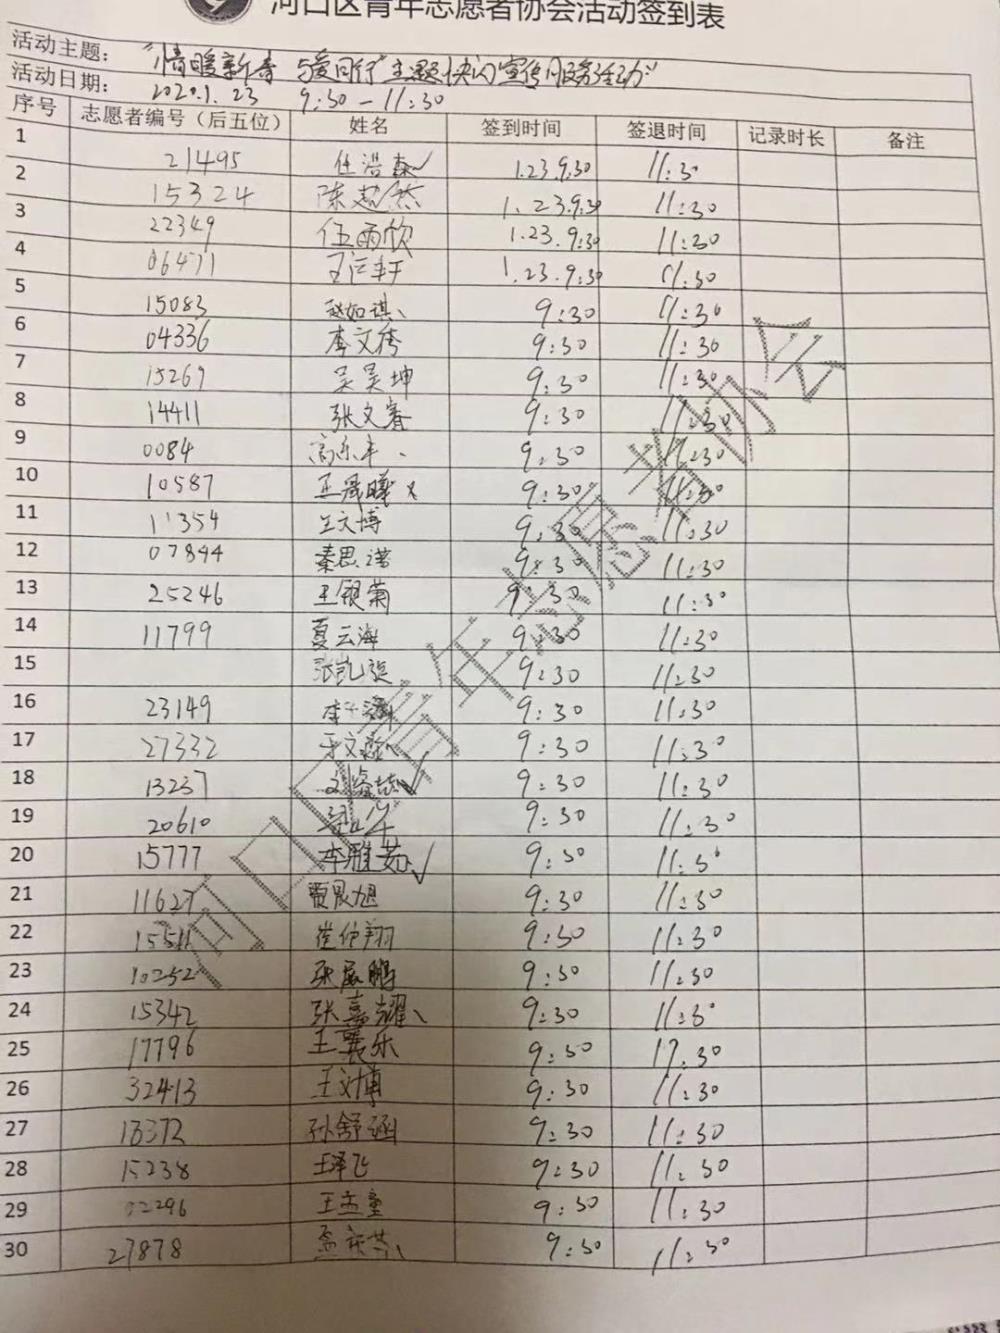 河口区青年志愿者协会活动签到表
活动主题: "情暖新春 与爱同行"主题快闪宣传服务活动
活动日期: 2020.1.23 9:30-11:30
序号 志愿者编号（后五位） 姓名 签到时间 签退时间 记录时长 备注
1 21495 任浩森✓ 1.23.9:30 11:30
2 15324 陈超然 1.23.9:30 11:30
3 22349 伍雨欣 1.23.9:30 11:30
4 06471 1.23.9:30 11:30
5 15083 赵如琪 9:30 11:30
6 04336 李文秀 9:30 11:30
7 15269 吴昊坤 9:30 11:30
8 14411 张文睿 9:30 11:30
9 0084 9:30 11:30
10 10587 王晨曦 9:30 11:30
11 11354 王文博 9:30 11:30
12 07844 秦思诺 9:30 11:30
13 25246 王银菊 9:30 11:30
14 11799 夏云海 9:30 11:30
15 9:30 11:30
16 23149 9:30 11:30
17 27332 9:30 11:30
18 13237 9:30 11:30
19 20610 9:30 11:30
20 15777 李雅茹✓ 9:30 11:30
21 11627 贾晨旭 9:30 11:30
22 15511 9:30 11:30
23 10252 张展鹏 9:30 11:30
24 15342 张嘉耀 9:30 11:30
25 17796 王冀乐 9:30 17.30
26 32413 王文博 9:30 11:30
27 18372 孙舒涵 9:30 11:30
28 15238 王泽飞 9:30 11:30
29 02296 王孟奎 9:30 11:30
30 27878 9:30 11:30
河口区青年志愿者协会